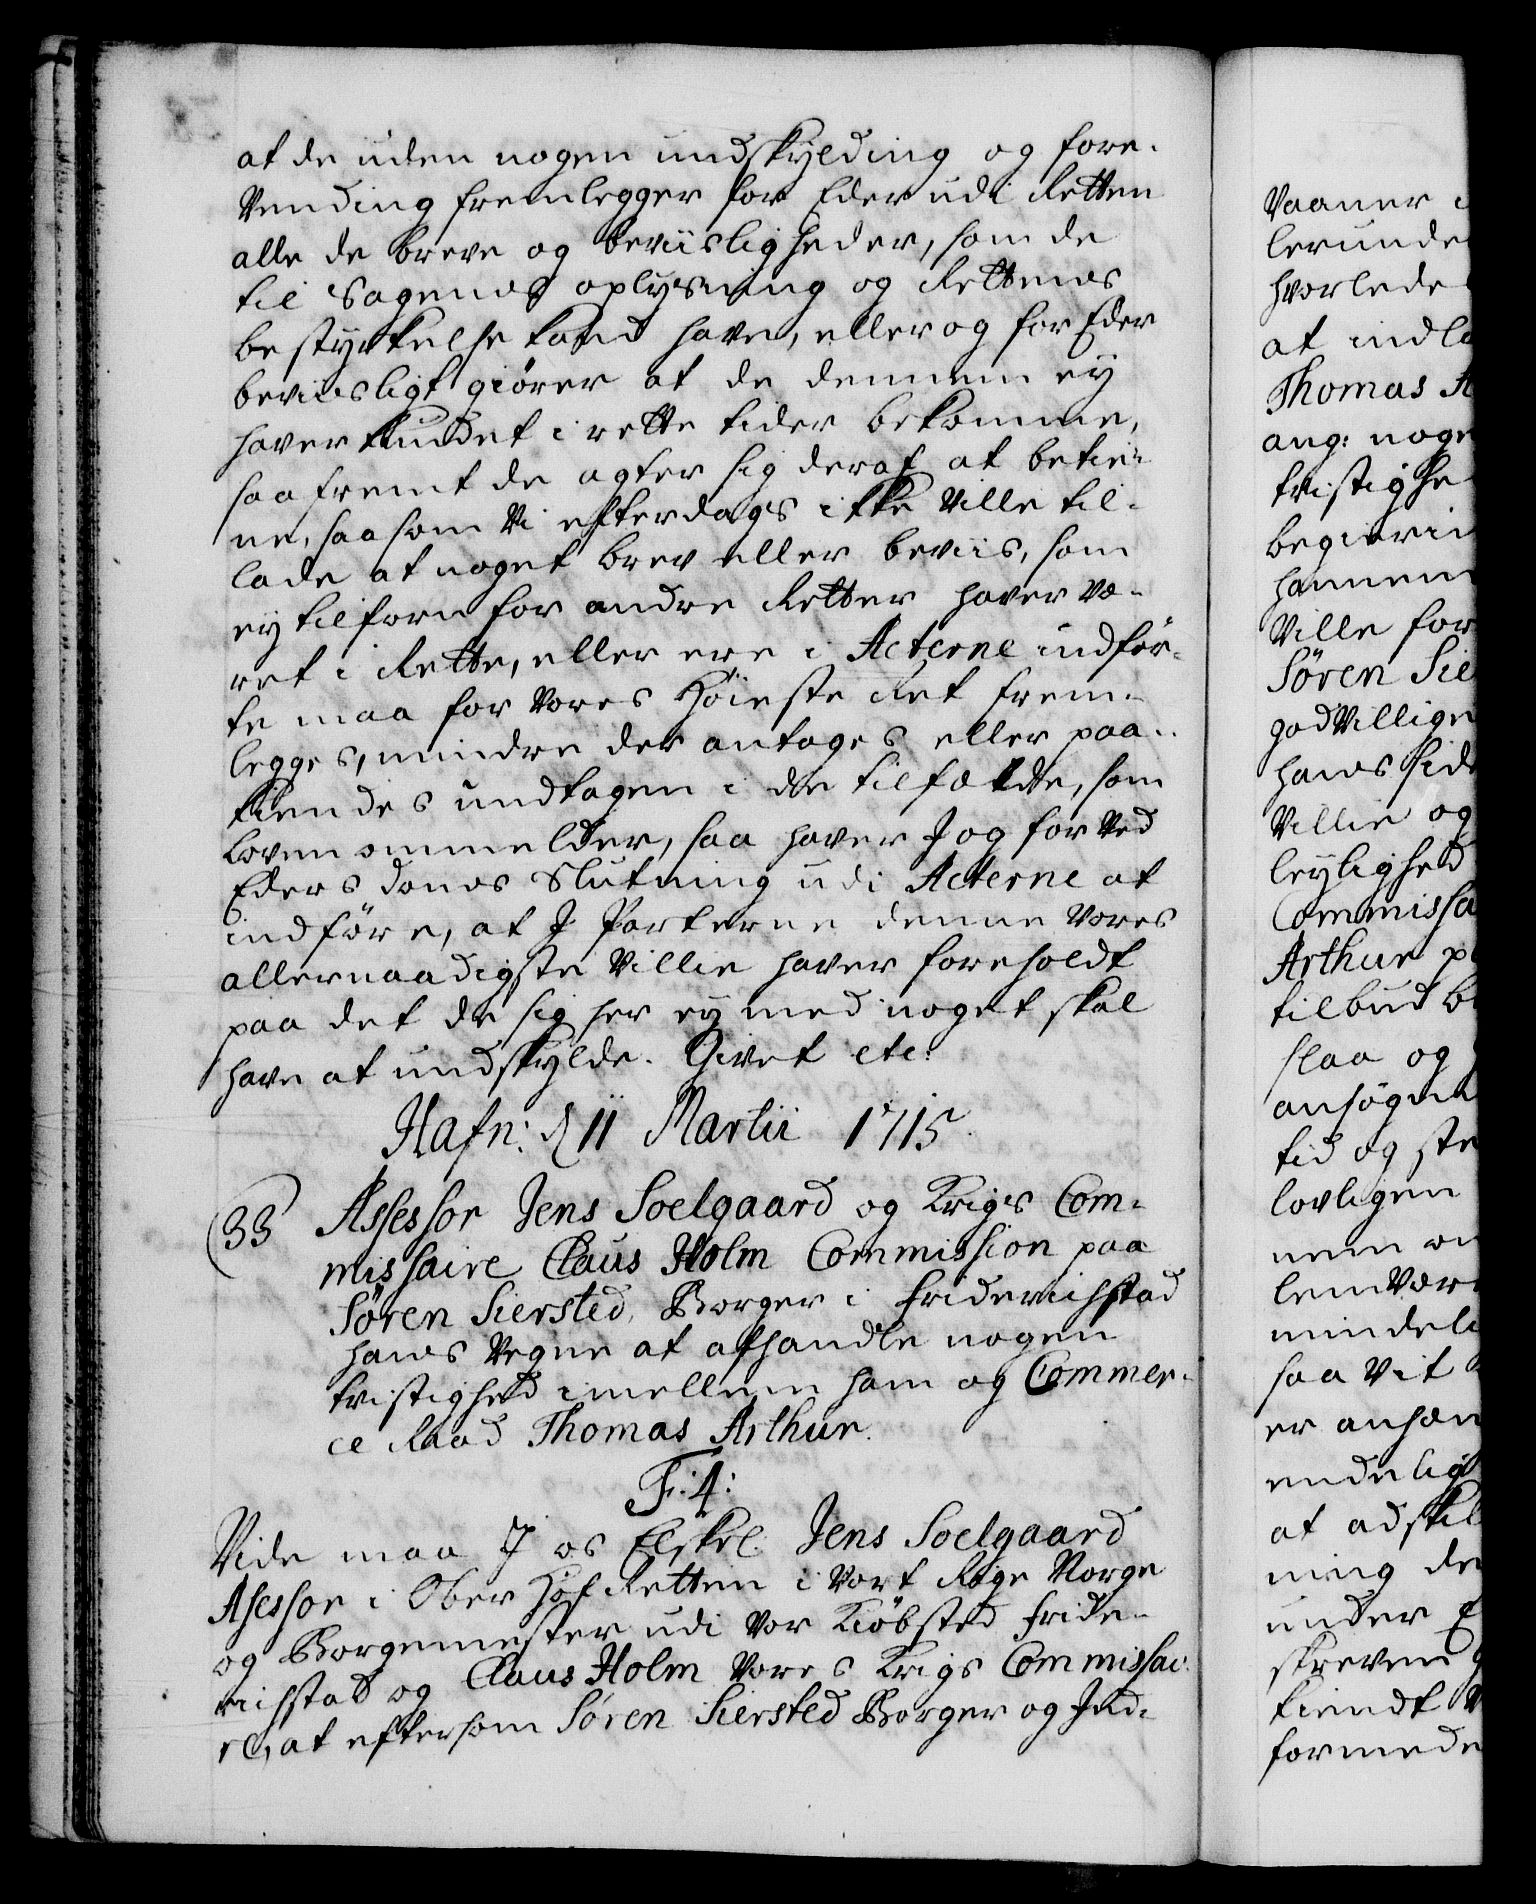 at de uden nogen undskylding og fore-
Vending fremlegger for Eder udi Retten
alle de breve og beviisligheder, som de
til Sagens oplysning og Rettens
bestyrkelse kand have, eller og for Eder
beviisligt giörer at de dennem ey
haver kundet i rette tider bekomme,
saafremt de agter sig deraf at betie-
ne, saasom Vi efterdags ikke Ville til-
lade at noget brev eller beviis, som
ey tilforn for andre Retter haver væ-
ret i Rette, eller ere i Acterne indför-
te maa for Vores Höieste Ret frem-
legges, mindre der antages eller paa-
kiendes undtagen i de tilfælde, som
Loven ommelder, saa haver J og for Ved
Eders doms Slutning udi Acterne at
indföre, at J Parterne denne Vores
allernaadigste Villie haver foreholdt
paa det de sig her ey med noget skal
have at undskylde. Givet etc:
Hafn: d 11 Martii 1715.
33 Assessor Jens Soelgaard og Krigs Com-
missaire Claus Holm Commission paa
Sören Siersted, Borger i Friderichstad
hans Vegne at afhandle nogen
tvistighed imellem ham og Commer-
ce Raad Thomas Arthur.
F: 4:
Vide maa J os Elskel. Jens Soelgaard
Asessor i Ober Hof Retten i Vort Rige Norge
og Borgemester udi Vor Kiöbsted Fride-
richstad og Claus Holm Vores Krigs Commissai-
re, at eftersom Sören Siersted Borger og Ind-
Vaaner i
hvorlede
at indl
Thomas A
ang: noge
tvistighe
begierin
hannem
Ville for
Sören Sie
godVillige
hans side
Villie og
leylighed
Commissa
Arthur p
tilbud b
slaa og
ansögn
tid og ste
lovligen
mindeli
saa Vit
endelig
at adskil
ning de
under E
skreven
kiendt
formede